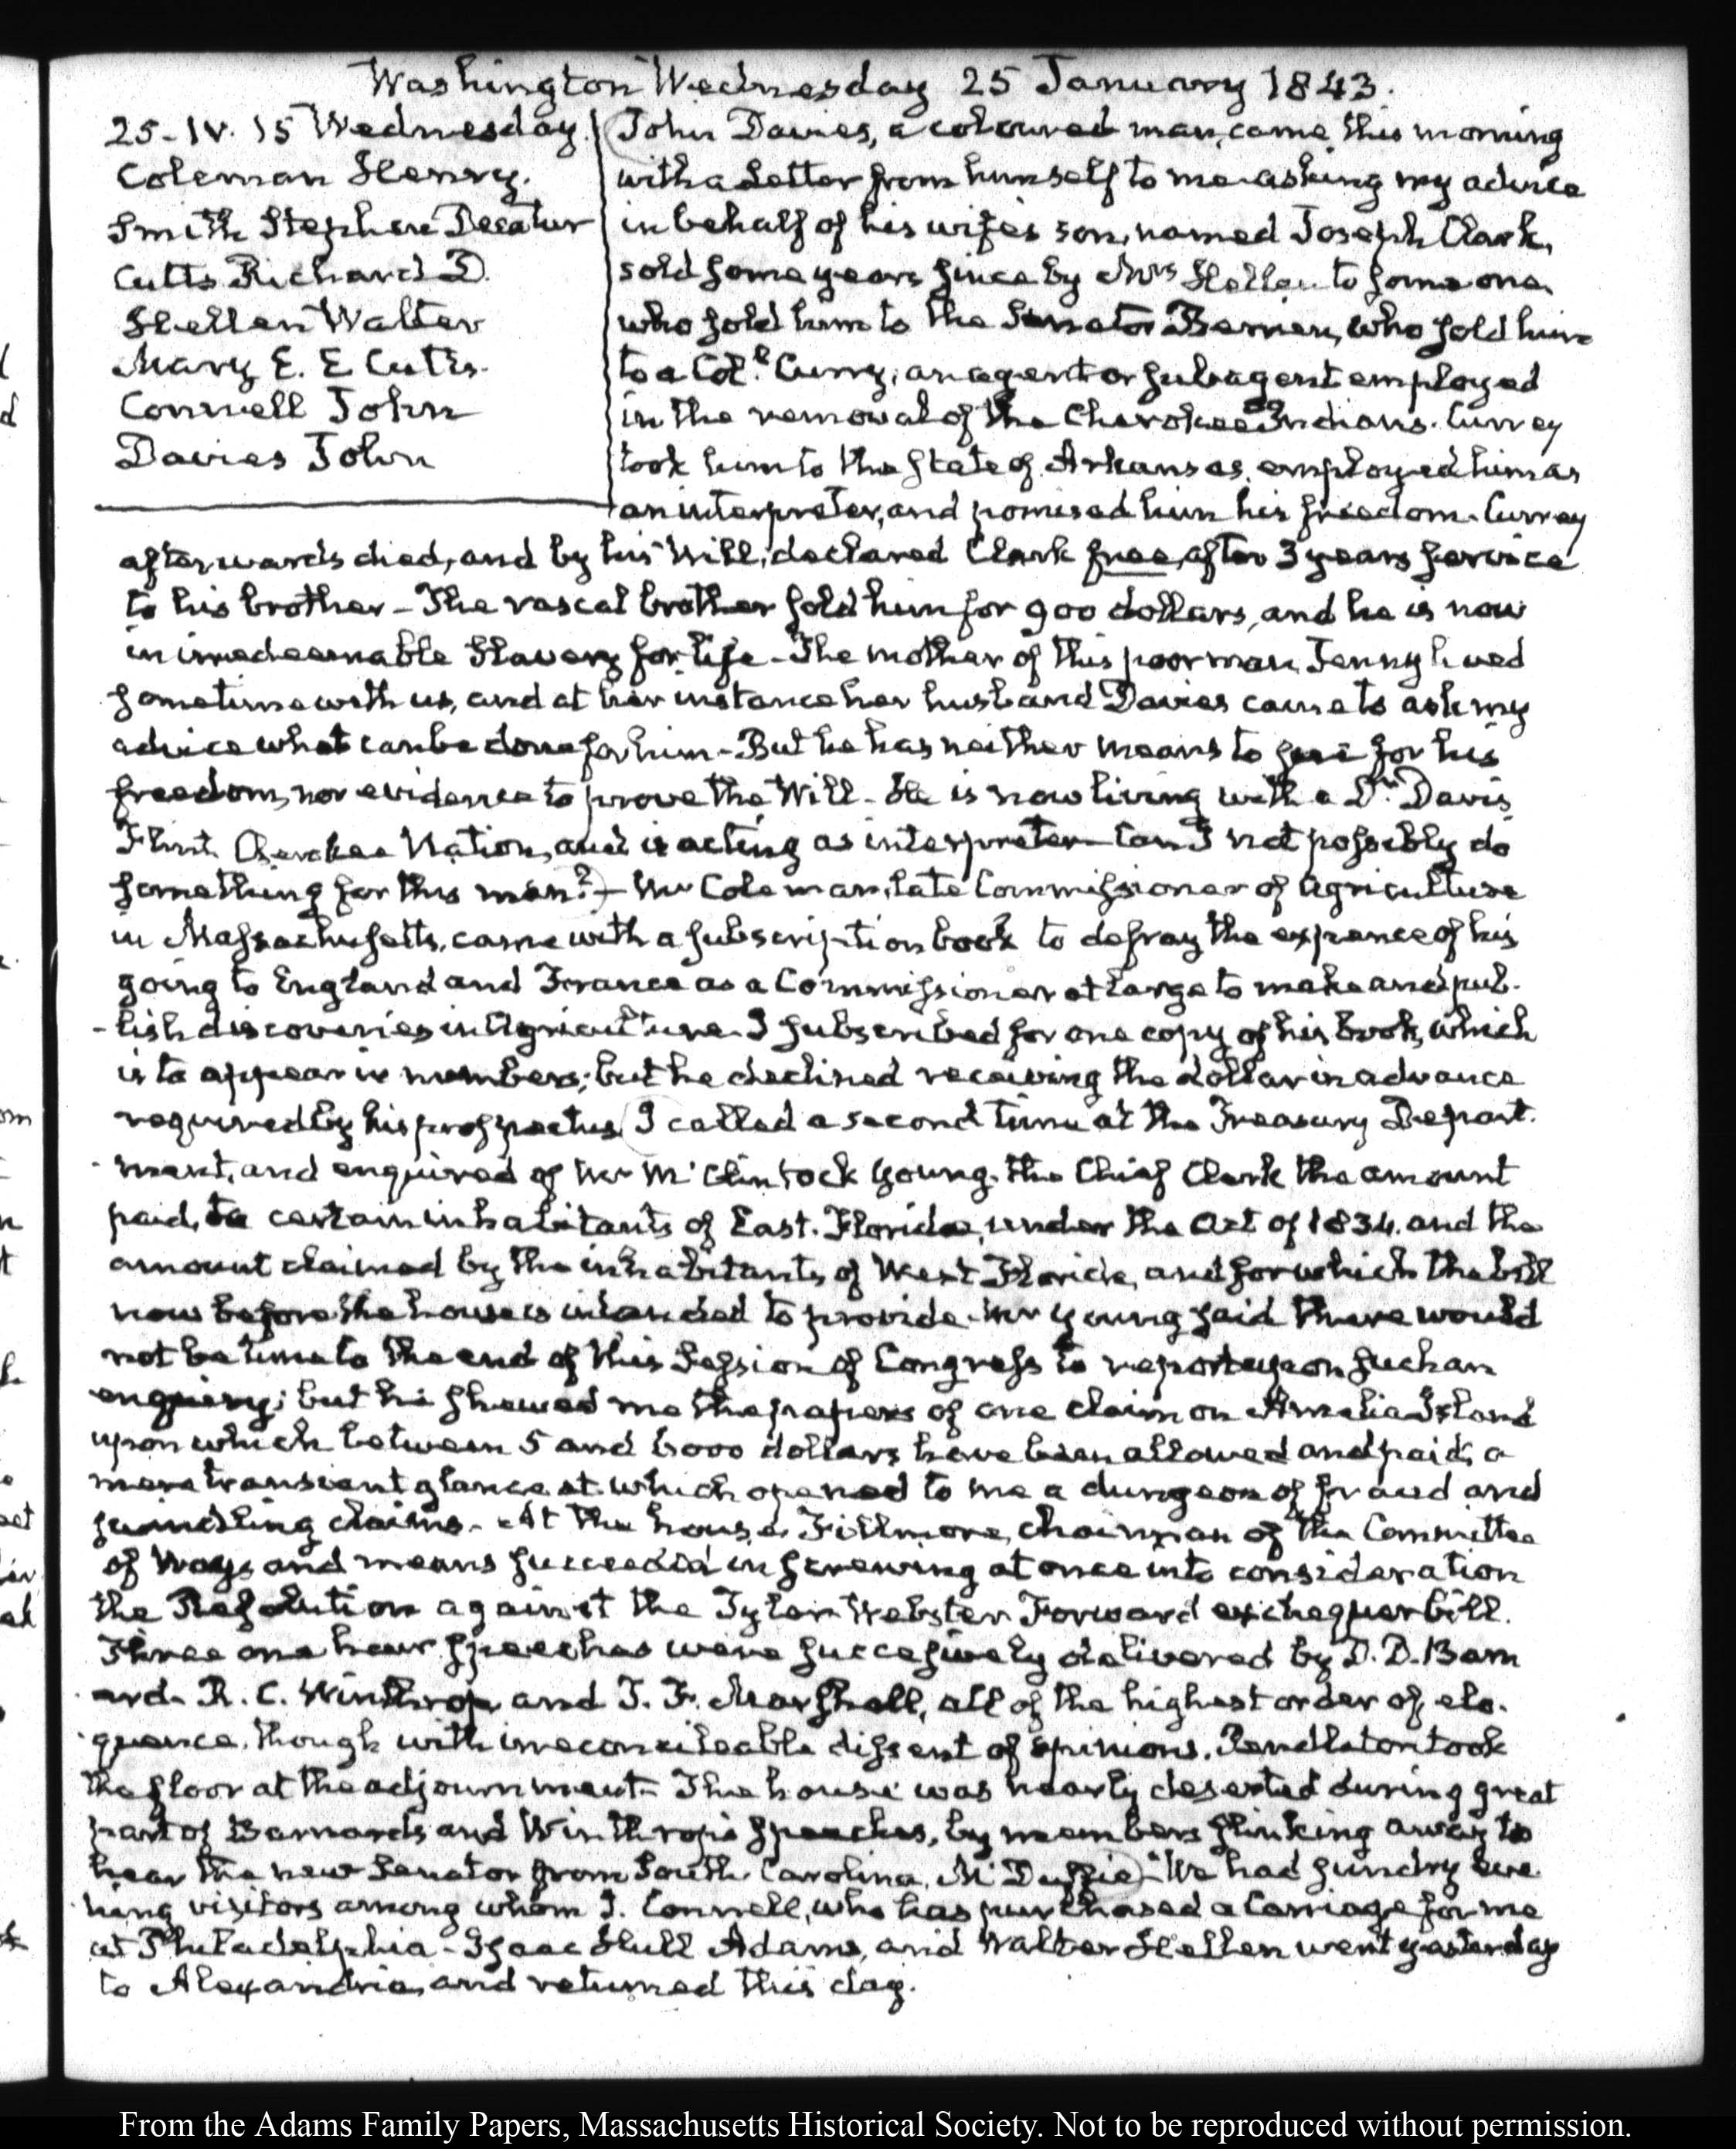 Washington Wednesday 25 January 1843.
25. IV. 15 Wednesday.
Coleman Henry.
Smith Stephen Decatur
Cutts Richard D.
Hellen Walter
Mary E. E Cutts.
Connell John
Davies John
John Davies, a coloured man, came this morning
with a Letter from himself to me asking my advice
in behalf of his wife's son, named Joseph Clark,
sold some years since by Mrs Hellen to some one,
who sold him to the Senator Berrien, who sold him
to a Coll. Curry, an agent or subagent employed
in the removal of the Cherokee Indians. Currey
took him to the State of Arkansas, employed him as
an interpreter, and promised him his freedom. Currey
afterwards died, and by his Will, declared Clark free, after 3 years service
to his brother – The rascal brother sold him for 900 dollars, and he is now
in irredeemable Slavery for life – The mother of this poor man Jenny lived
sometime with us, and at her instance her husband Davies came to ask my
advice what can be done for him – But he has neither means to sue for his
freedom, nor evidence to prove the Will – He is now living with a Dr. Davis
Flint Cherokee Nation, and is acting as interpreter – Can I not possibly do
something for this man? – Mr Coleman, late Commissioner of Agriculture
in Massachusetts, came with a subscription book to defray the expence of his
going to England and France as a Commissioner at large to make and pub-
-lish discoveries in Agriculture. I subscribed for one copy of his book, which
is to appear in numbers; but he declined receiving the dollar in advance
required by his prospectus. I called a second time at the Treasury Depart-
-ment, and enquired of Mr McClintock Young, the Chief Clerk the amount
paid, to certain inhabitants of East. Florida, under the Act of 1834. and the
amount claimed by the inhabitants of West Florida, and for which the bill
now before the house is intended to provide. Mr Young said there would
not be time to the end of this Session of Congress to report upon such an
enquiry; but he shewed me the papers of one claim on Amelia Island
upon which between 5 and 6000 dollars have been allowed and paid; a
mere transient glance at which opened to me a dungeon of fraud and
swindling claims. – At the house, Fillmore, chairman of the Committee
of Ways and means succeeded in screwing at once into consideration
the Resolution against the Tyler Webster Forward exchequer bill.
Three one hour speeches were successively delivered by D. D. Barn
ard. R. C. Winthrop and T. F. Marshall, all of the highest order of elo-
-quence, though with irreconcileable dissent of opinions. Pendleton took
the floor at the adjournment – The house was nearly deserted during great
part of Barnard's and Winthrop's speeches, by members slinking away to
hear the new Senator from South Carolina, McDuffie – We had sundry eve-
ning visitors among whom J. Connell, who has purchased a Carriage for me
at Philadelphia – Isaac Hull Adams, and Walter Hellen went yesterday
to Alexandria, and returned this day.
From the Adams Family Papers, Massachusetts Historical Society. Not to be reproduced without permission.